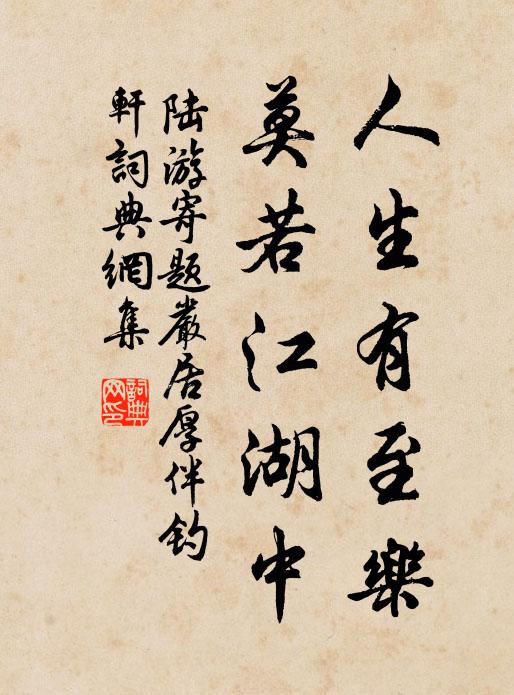 人生有至樂
莫若江湖中
陆游寄题嚴居厚伴钓
軒詞典網集
詞典网印